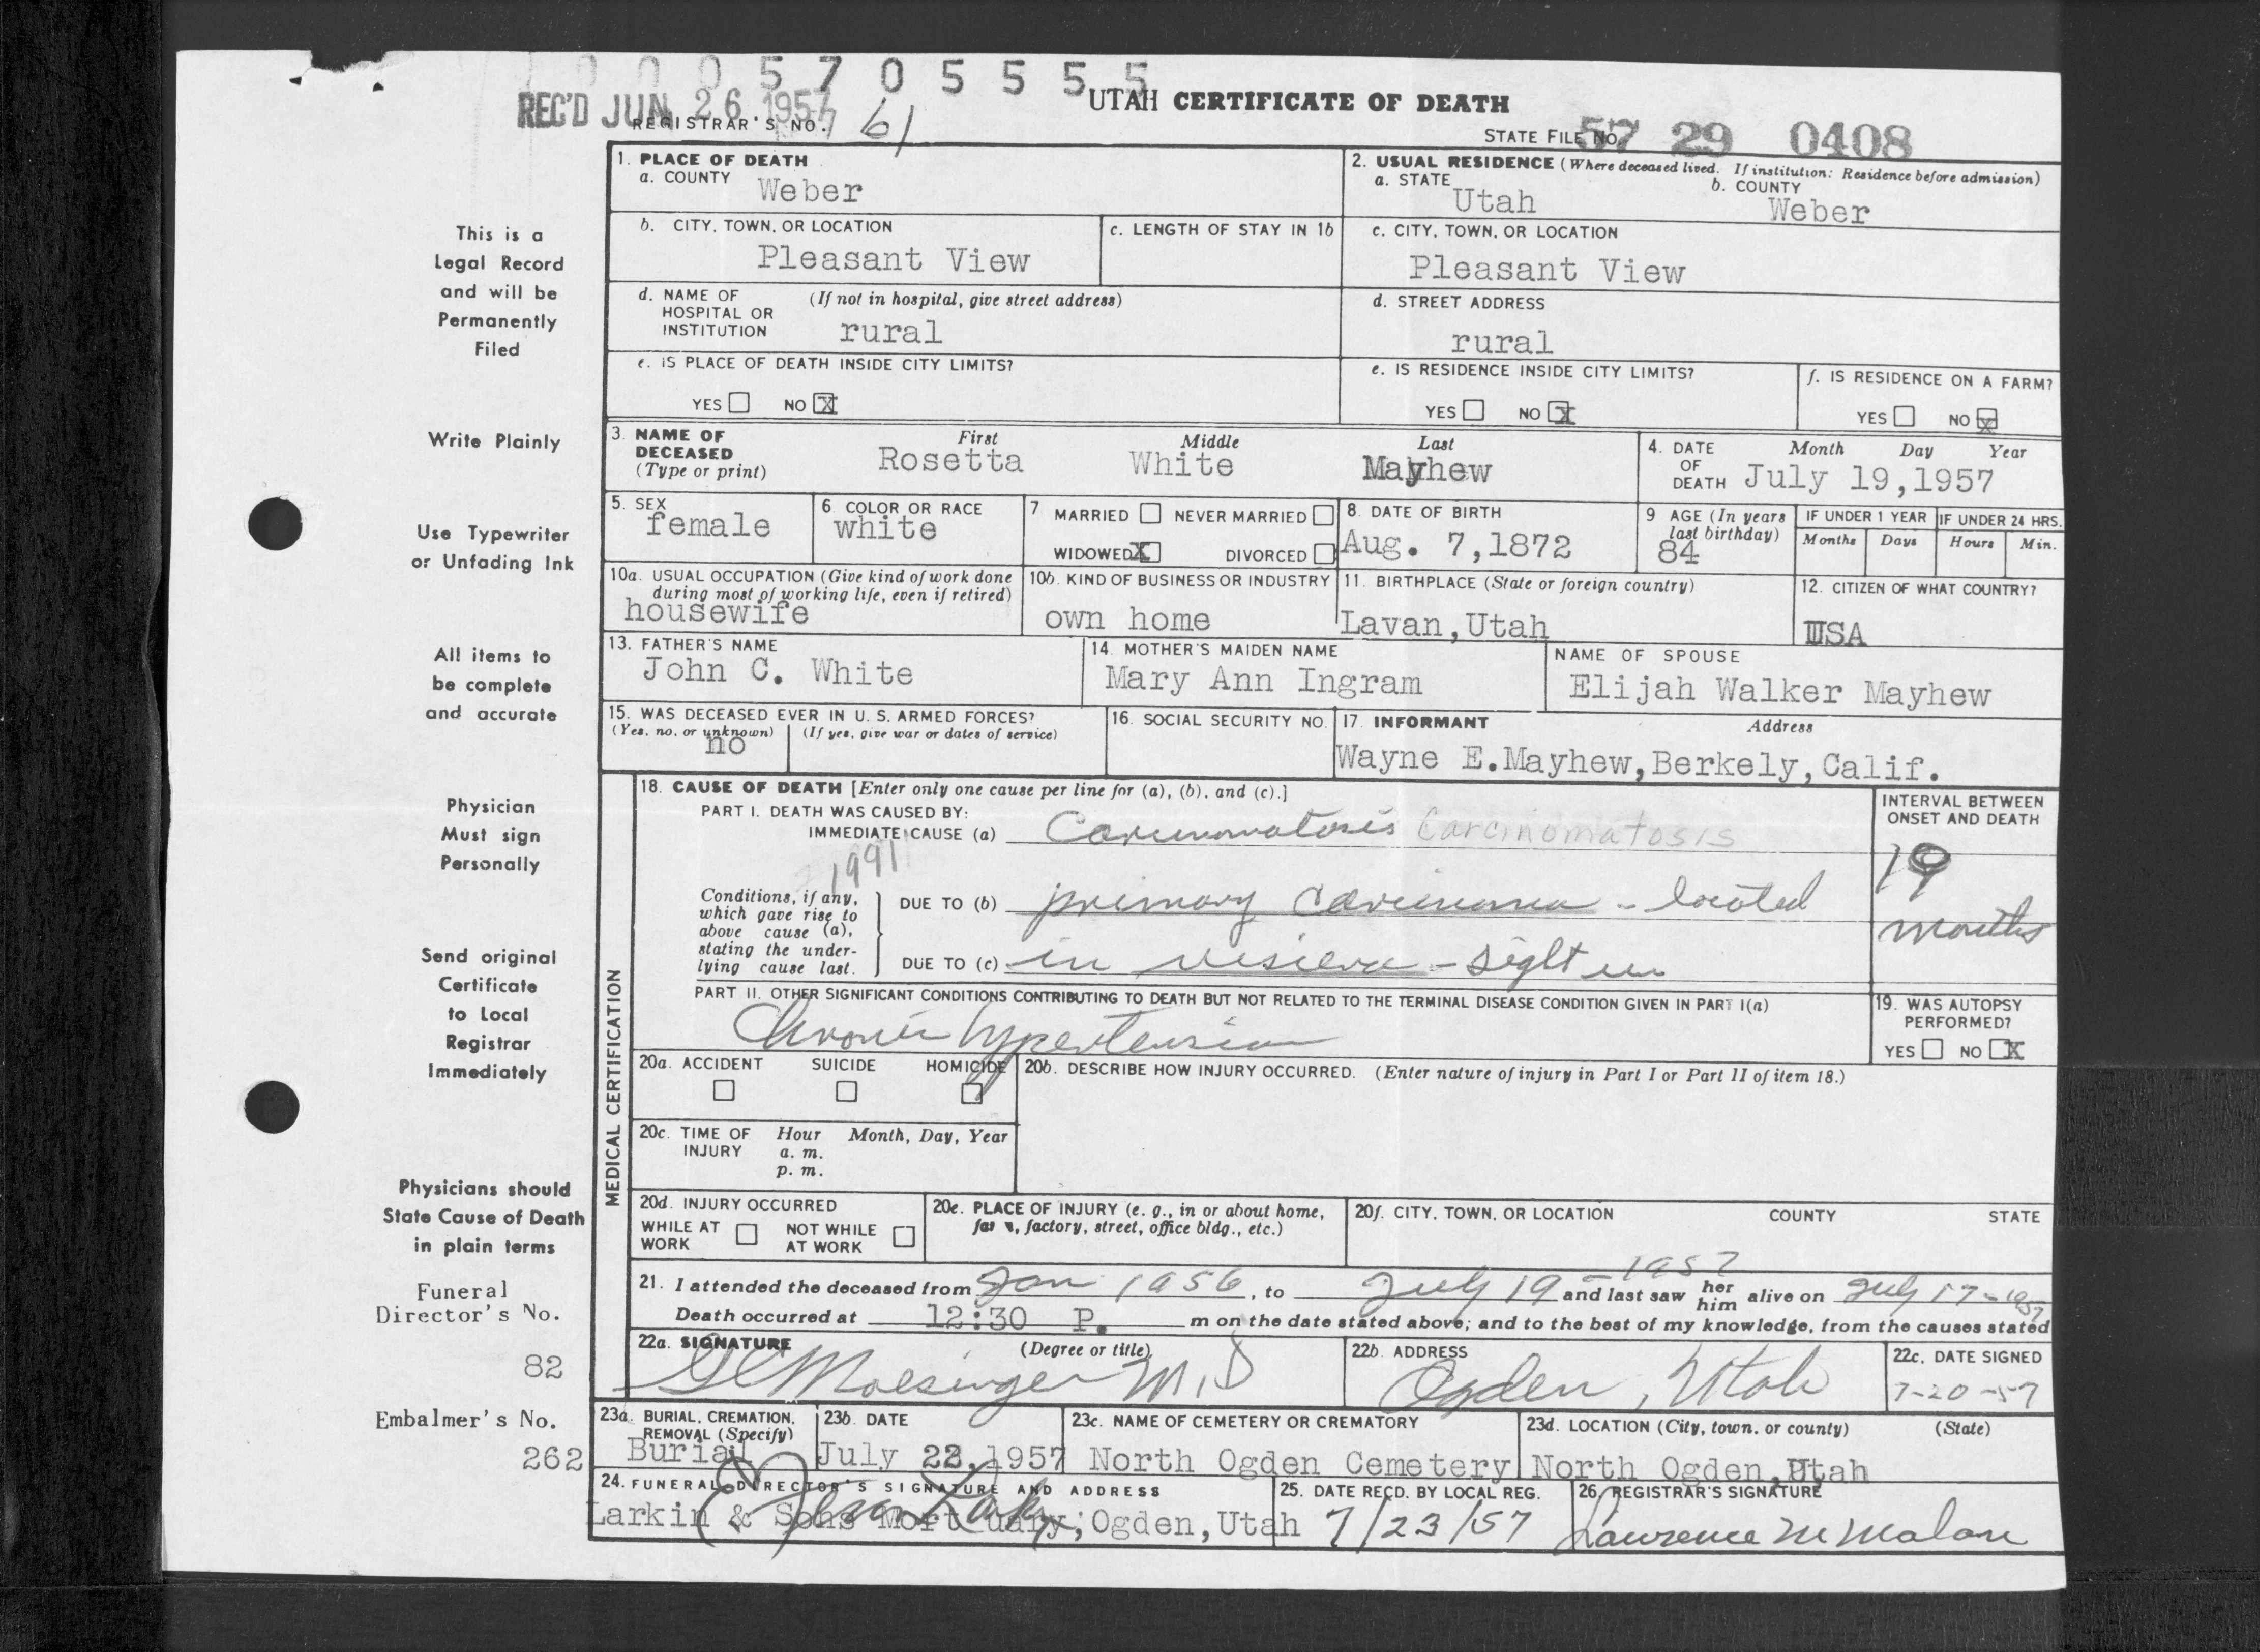 0 0 0 5 7 0 5 5 5 5
REC'D JUN 26 1957
UTAH CERTIFICATE OF DEATH
REGISTRAR'S NO. 61
STATE FILE NO. 57 29 0408
1. PLACE OF DEATH
a. COUNTY Weber
2. USUAL RESIDENCE (Where deceased lived. If institution: Residence before admission)
a. STATE Utah b. COUNTY Weber
This is a Legal Record and will be Permanently Filed
b. CITY, TOWN, OR LOCATION Pleasant View
c. LENGTH OF STAY IN 1b
c. CITY, TOWN, OR LOCATION Pleasant View
d. NAME OF HOSPITAL OR INSTITUTION (If not in hospital, give street address) rural
d. STREET ADDRESS rural
e. IS PLACE OF DEATH INSIDE CITY LIMITS? YES NO X
e. IS RESIDENCE INSIDE CITY LIMITS? YES NO X
f. IS RESIDENCE ON A FARM? YES NO X
Write Plainly
3. NAME OF DECEASED (Type or print) First Rosetta Middle White Last Mayhew
4. DATE OF DEATH Month Day Year July 19,1957
Use Typewriter or Unfading Ink
5. SEX female
6 COLOR OR RACE white
7 MARRIED NEVER MARRIED WIDOWED X DIVORCED
8. DATE OF BIRTH Aug. 7,1872
9 AGE (In years last birthday) 84
IF UNDER 1 YEAR Months Days
IF UNDER 24 HRS. Hours Min.
10a. USUAL OCCUPATION (Give kind of work done during most of working life, even if retired) housewife
10b. KIND OF BUSINESS OR INDUSTRY own home
11. BIRTHPLACE (State or foreign country) Lavan,Utah
12. CITIZEN OF WHAT COUNTRY? USA
All items to be complete and accurate
13. FATHER'S NAME John C. White
14. MOTHER'S MAIDEN NAME Mary Ann Ingram
NAME OF SPOUSE Elijah Walker Mayhew
15. WAS DECEASED EVER IN U. S. ARMED FORCES? (Yes, no, or unknown) no (If yes, give war or dates of service)
16. SOCIAL SECURITY NO.
17. INFORMANT Address Wayne E.Mayhew,Berkely,Calif.
Physician Must sign Personally
MEDICAL CERTIFICATION
18. CAUSE OF DEATH [Enter only one cause per line for (a), (b), and (c).]
PART I. DEATH WAS CAUSED BY:
IMMEDIATE CAUSE (a) Carcinomatosis Carcinomatosis
1991
INTERVAL BETWEEN ONSET AND DEATH 19 months
Conditions, if any, which gave rise to above cause (a), stating the underlying cause last.
DUE TO (b) primary carcinoma - located
DUE TO (c) in viscera -
Send original Certificate to Local Registrar Immediately
PART II. OTHER SIGNIFICANT CONDITIONS CONTRIBUTING TO DEATH BUT NOT RELATED TO THE TERMINAL DISEASE CONDITION GIVEN IN PART I(a)
Chronic hypertension
19. WAS AUTOPSY PERFORMED? YES NO X
20a. ACCIDENT SUICIDE HOMICIDE
20b. DESCRIBE HOW INJURY OCCURRED. (Enter nature of injury in Part I or Part II of item 18.)
20c. TIME OF INJURY Hour a. m. p. m. Month, Day, Year
Physicians should State Cause of Death in plain terms
20d. INJURY OCCURRED WHILE AT WORK NOT WHILE AT WORK
20e. PLACE OF INJURY (e. g., in or about home, farm, factory, street, office bldg., etc.)
20f. CITY, TOWN, OR LOCATION COUNTY STATE
21. I attended the deceased from Jan 1956, to July 19 - 1957 and last saw her him alive on July 17-1957
Death occurred at 12:30 P. m on the date stated above; and to the best of my knowledge, from the causes stated
Funeral Director's No. 82
22a. SIGNATURE (Degree or title) Moesinger M.D
22b. ADDRESS Ogden, Utah
22c. DATE SIGNED 7-20-57
Embalmer's No. 262
23a. BURIAL, CREMATION, REMOVAL (Specify) Burial
23b. DATE July 22,1957
23c. NAME OF CEMETERY OR CREMATORY North Ogden Cemetery
23d. LOCATION (City, town, or county) (State) North Ogden,Utah
24. FUNERAL DIRECTOR'S SIGNATURE AND ADDRESS
Larkin & Sons Mortuary, Ogden,Utah
25. DATE RECD. BY LOCAL REG. 7/23/57
26. REGISTRAR'S SIGNATURE Lawrence M Malan